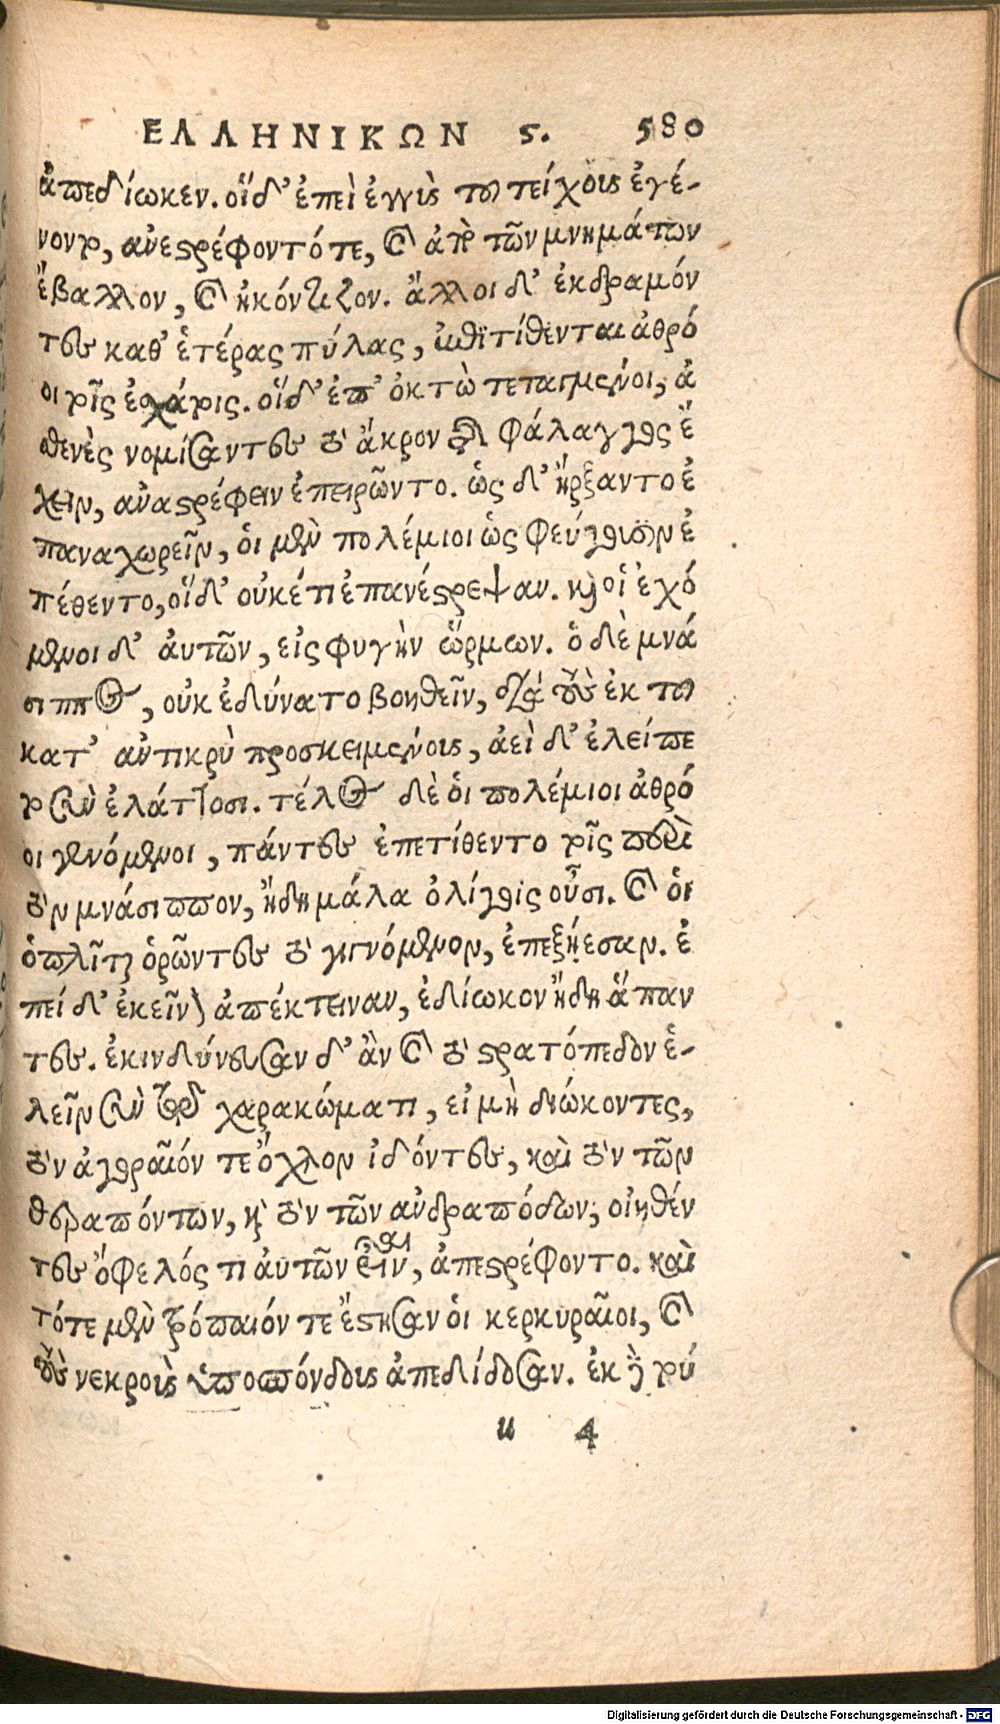 ΕΛΛΗΝΙΚΩΝ ϛ. 580
ἀπεδίωκεν. οἵδ' ἐπεὶ ἐγγὺς τοῦ τείχους ἐγέ-
νοντο, ἀνεστρέφοντό τε, καὶ ἀπὸ τῶν μνημάτων
ἔβαλλον, καὶ ἠκόντιζον. ἄλλοι δ' ἐκδραμόν
τες καθ' ἑτέρας πύλας, ἐπιτίθενται ἀθρό
οι τοῖς ἐσχάτοις. οἵδ' ἐπ' ὀκτὼ τεταγμένοι, ἀ
σθενὲς νομίσαντες τὸ ἄκρον τῆς φάλαγγος ἔ
χειν, ἀναστρέφειν ἐπειρῶντο. ὡς δ' ἤρξαντο ἐ
παναχωρεῖν, οἱ μὲν πολέμιοι ὡς φεύγουσιν ἐ
πέθεντο, οἵδ' οὐκέτι ἐπανέστρεψαν. καὶ οἱ ἐχό
μενοι δ' ἀυτῶν, εἰς φυγὴν ὥρμων. ὁ δὲ μνά
σιππος, οὐκ ἐδύνατο βοηθεῖν, διὰ τοὺς ἐκ τοῦ
κατ' αὐτικρὺ προσκειμένους, ἀεὶ δ' ἐλείπε
το σὺν ἐλάττοσι. τέλος δὲ οἱ πολέμιοι ἀθρό
οι γενόμενοι, πάντες ἐπετίθεντο τοῖς περὶ
τὸν μνάσιππον, ἤδη μάλα ὀλίγοις οὖσι. καὶ οἱ
ὁπλῖται ὁρῶντες τὸ γιγνόμενον, ἐπεξῄεσαν. ἐ
πεί δ' ἐκεῖνον ἀπέκτειναν, ἐδίωκον ἤδη ἅπαν
τες. ἐκινδύνευσαν δ' ἂν καὶ τὸ στρατόπεδον ἑ-
λεῖν σὺν τῷ χαρακώματι, εἰ μὴ διώκοντες,
τὸν ἀγοραῖόν τε ὄχλον ἰδόντες, καὶ τὸν τῶν
θεραπόντων, καὶ τὸν τῶν ἀνδραπόδων, οἰηθέν
τες ὄφελός τι ἀυτῶν εἶναι, ἀπεστρέφοντο. καὶ
τότε μὲν τρόπαιόν τε ἔστησαν οἱ κερκυραῖοι, καὶ
τοὺς νεκροὺς ὑποσπόνδους ἀπεδίδοσαν. ἐκ δὲ τού
u 4
Digitalisierung gefördert durch die Deutsche Forschungsgemeinschaft - DFG